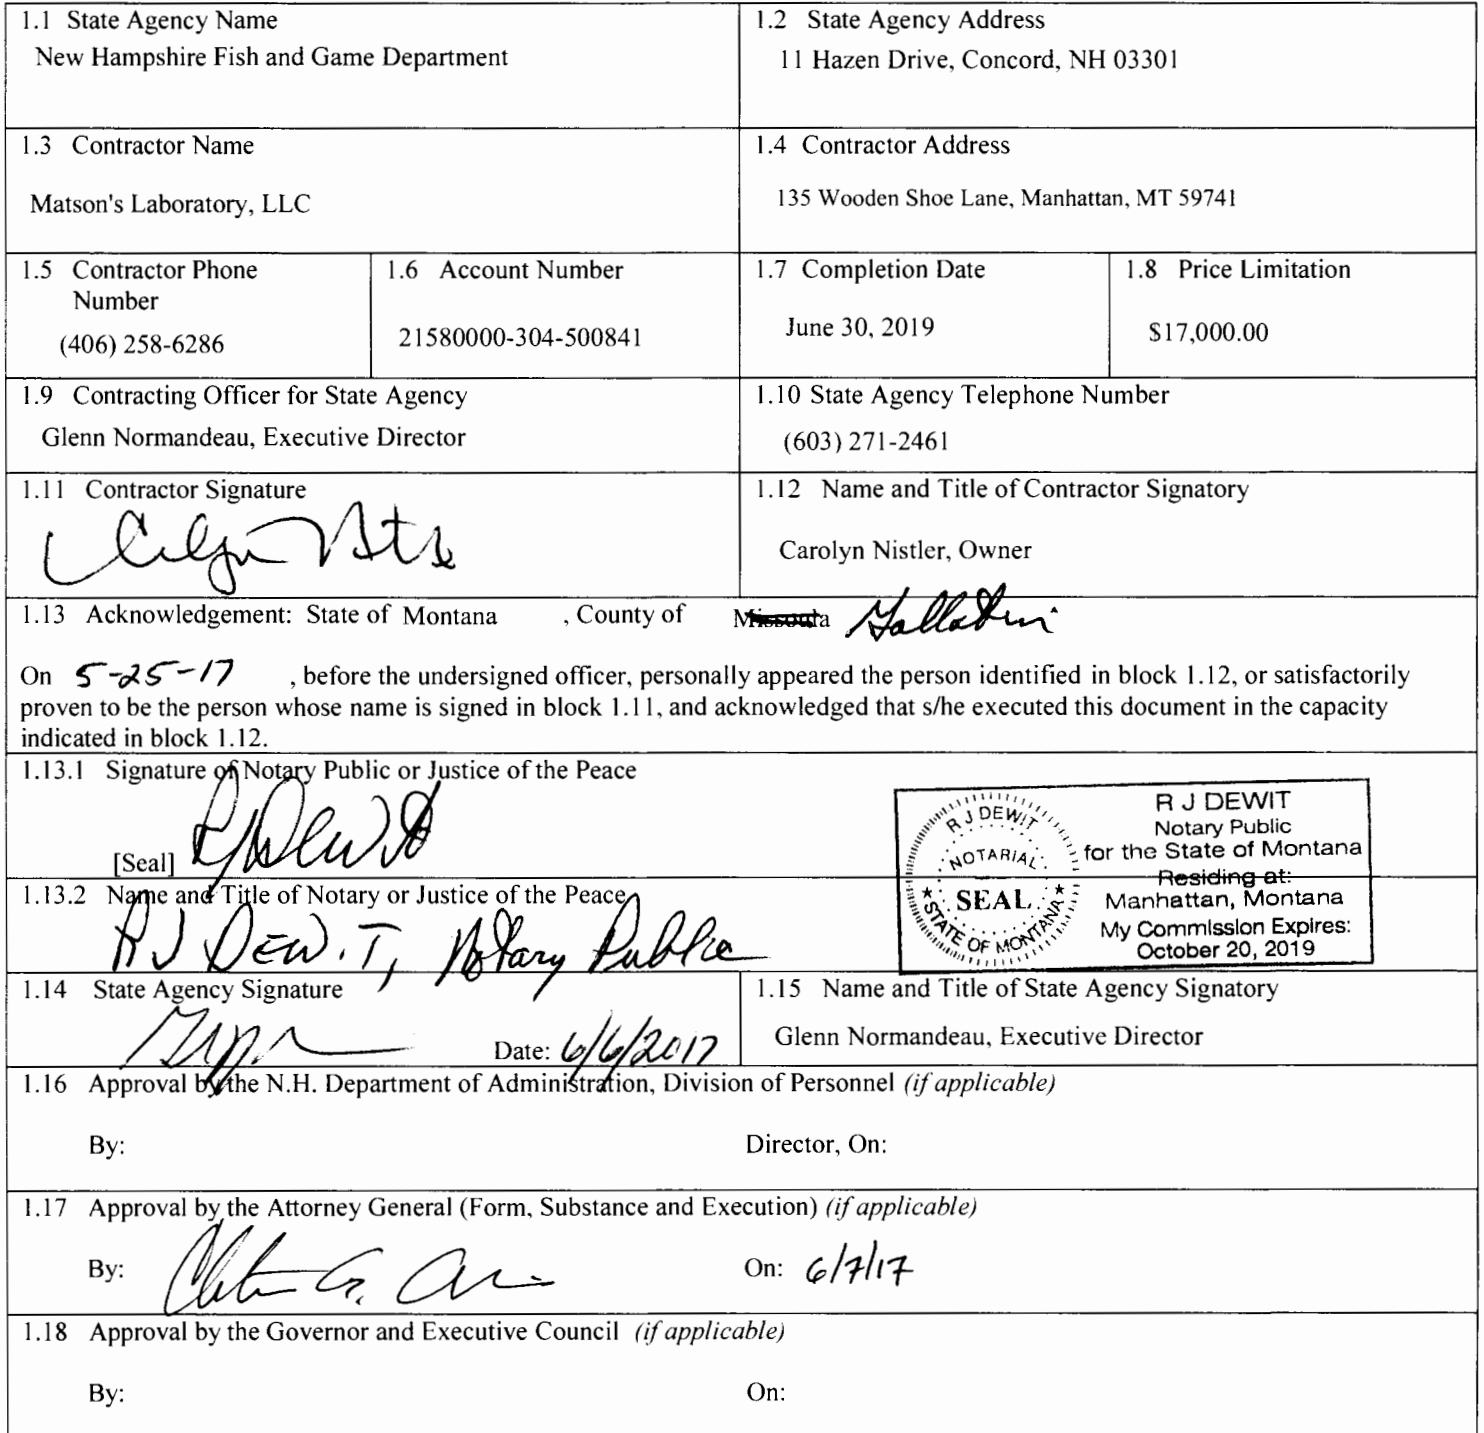 1.1 State Agency Name
New Hampshire Fish and Game Department
1.2 State Agency Address
11 Hazen Drive, Concord, NH 03301
1.3 Contractor Name
Matson's Laboratory, LLC
1.4 Contractor Address
135 Wooden Shoe Lane, Manhattan, MT 59741
1.5 Contractor Phone
Number
(406) 258-6286
1.6 Account Number
21580000-304-500841
1.7 Completion Date
June 30, 2019
1.8 Price Limitation
$17,000.00
1.9 Contracting Officer for State Agency
Glenn Normandeau, Executive Director
1.10 State Agency Telephone Number
(603) 271-2461
1.11 Contractor Signature
1.12 Name and Title of Contractor Signatory
Carolyn Nistler, Owner
1.13 Acknowledgement: State of Montana , County of Missoula Gallatin
On 5-25-17 , before the undersigned officer, personally appeared the person identified in block 1.12, or satisfactorily
proven to be the person whose name is signed in block 1.11, and acknowledged that s/he executed this document in the capacity
indicated in block 1.12.
1.13.1 Signature of Notary Public or Justice of the Peace
RJDewit
[Seal]
R J DEWIT
NOTARIAL
SEAL
STATE OF MONTANA
R J DEWIT
Notary Public
for the State of Montana
Residing at:
Manhattan, Montana
My Commission Expires:
October 20, 2019
1.13.2 Name and Title of Notary or Justice of the Peace
RJ DEWIT, Notary Public
1.14 State Agency Signature
Date: 6/6/2017
1.15 Name and Title of State Agency Signatory
Glenn Normandeau, Executive Director
1.16 Approval by the N.H. Department of Administration, Division of Personnel (if applicable)
By: Director, On:
1.17 Approval by the Attorney General (Form, Substance and Execution) (if applicable)
By: On: 6/7/17
1.18 Approval by the Governor and Executive Council (if applicable)
By: On: